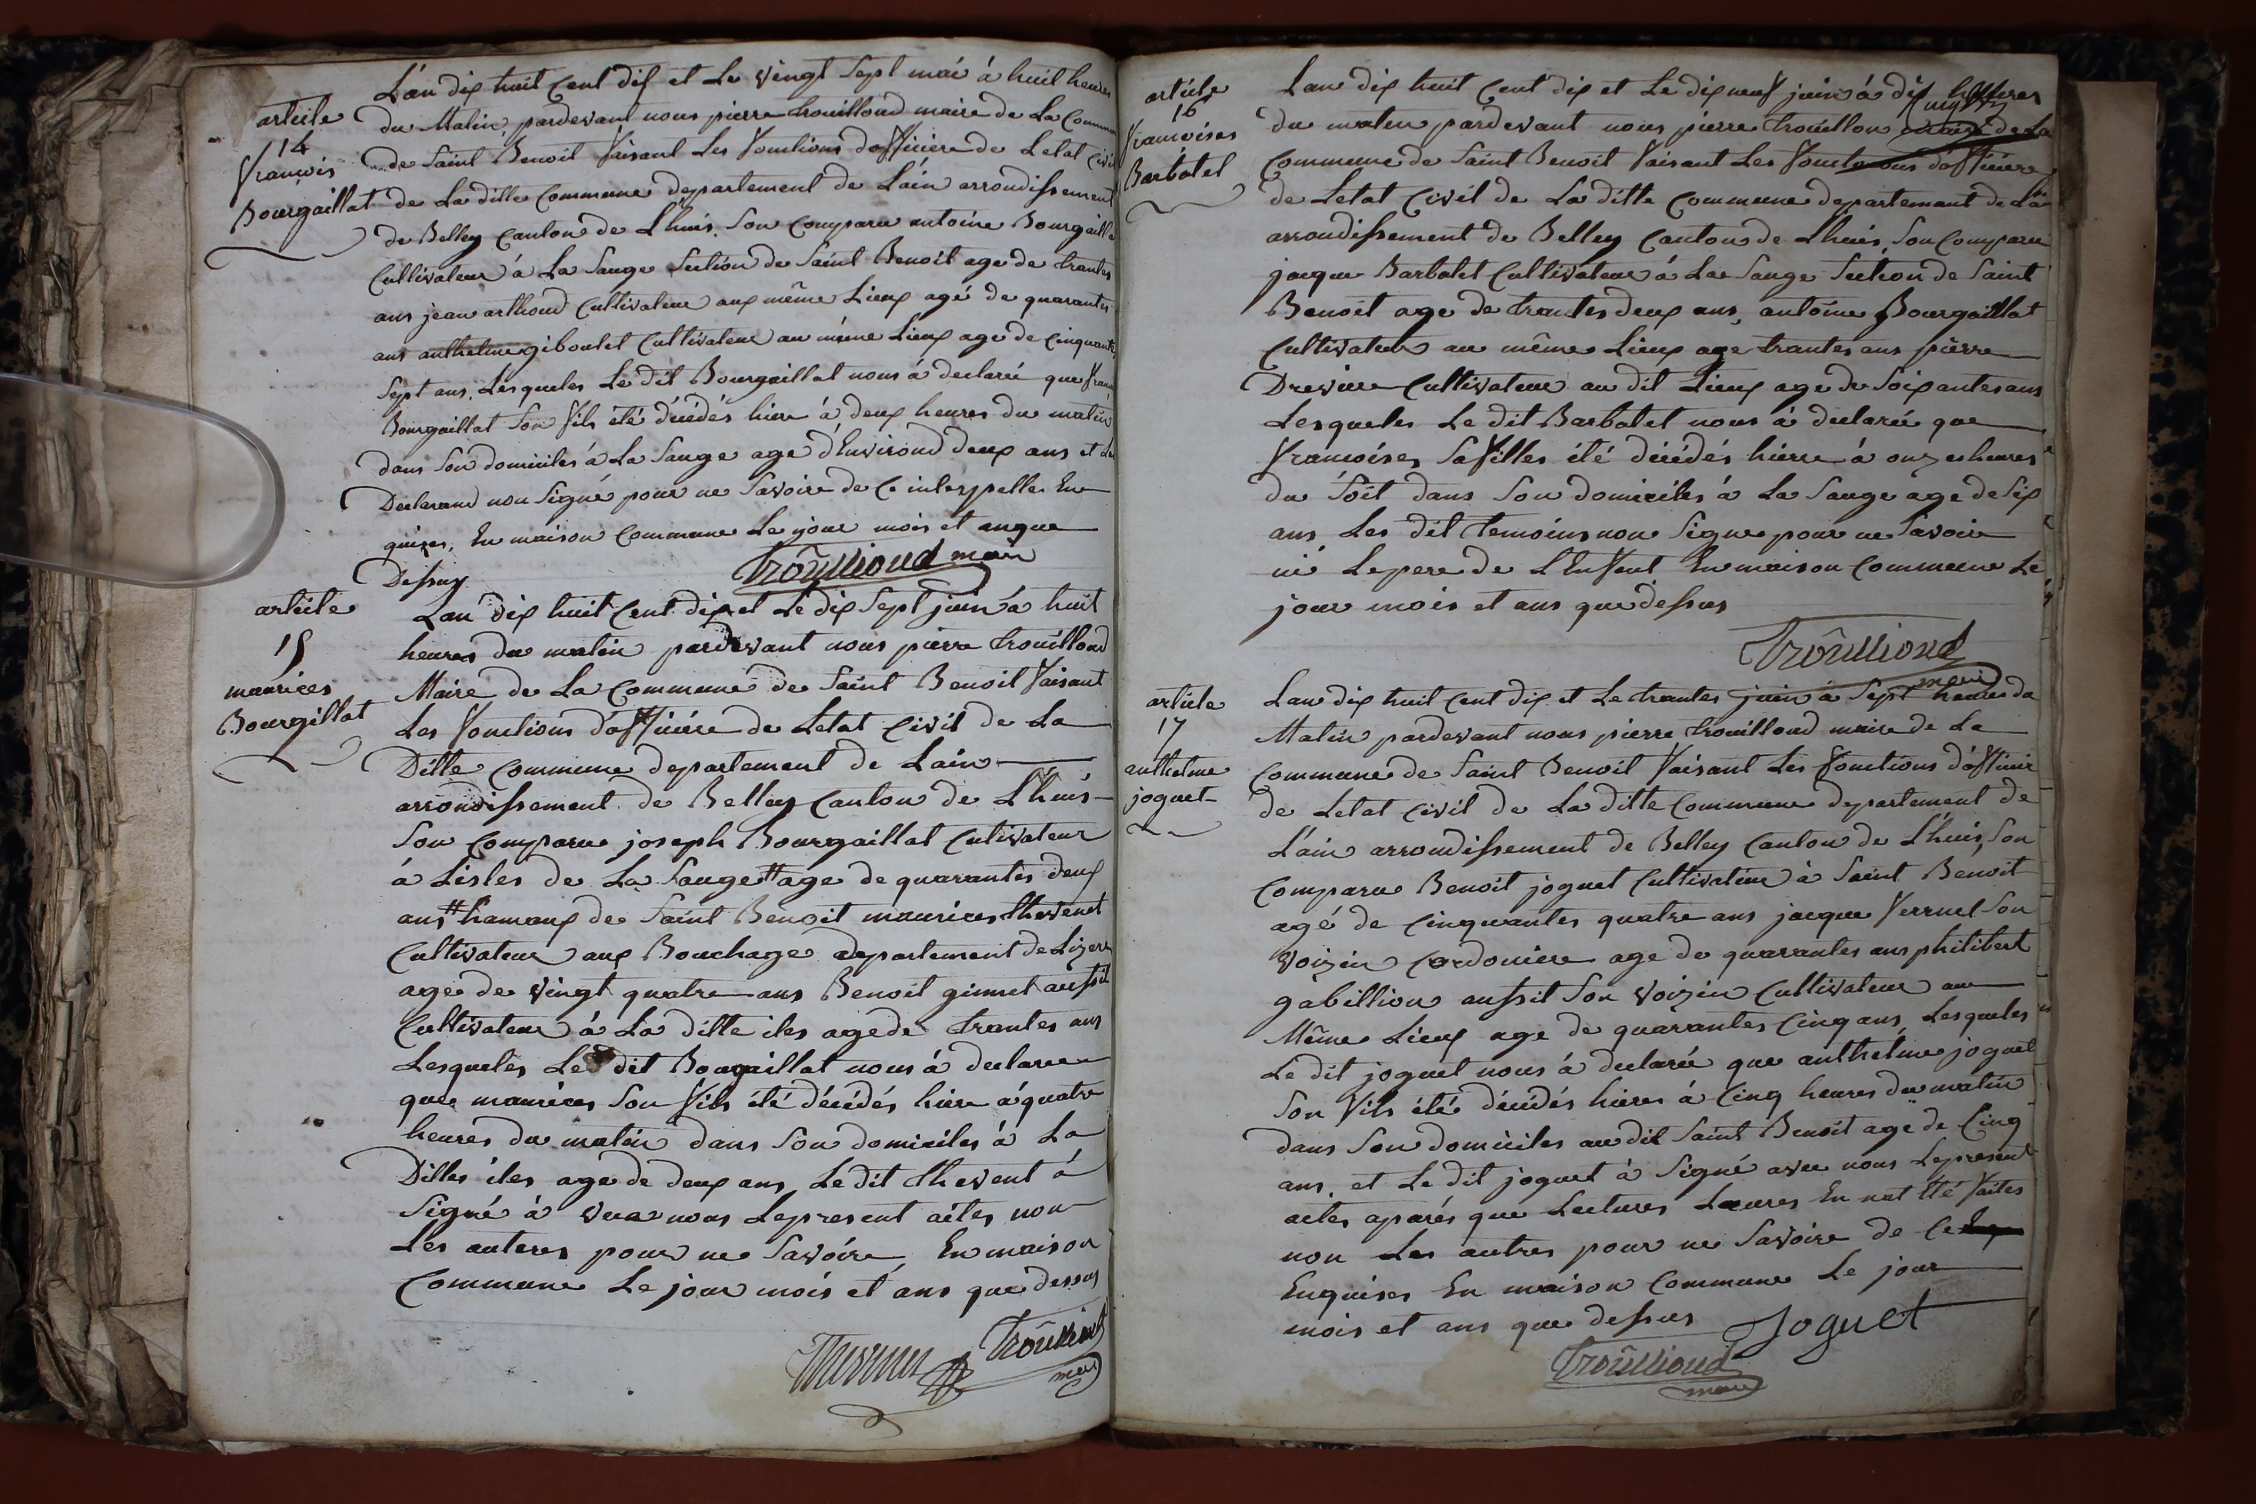 article
14
François
Bourgaillat
L'an dix huit Cent dix et Le vingt Sept mai à huit heures
du Matin, pardevant nous pierre trouilloud maire de La Commune
de Saint Benoit faisant Les fonctions d'officière de Letat Civil
de La ditte Commune departement de L'ain arrondissement
de Belley Canton de L'huis, Son Comparu antoine Bourgaillat
Cultivateur à La Sauge Section de Saint Benoit age de trantes
ans jean arthoud Cultivateur aux même Lieux agé de quarantes
ans anthelme giboulet Cultivateur au même Lieux age de Cinquante
Sept ans, Lesqueles Le dit Bourgaillat nous à declaré que
Bourgaillat Son fils été décédés hiere à deux heures du matin
dans Son domiciles à La Sauge age d'Environd deux ans et Les
Declarand non Signé pour ne Savoire de Ce interpelles En
quises, En maison Commune Le jour mois et anque
Dessus
Troûllioud maire
article
15
maurices
Bourgillat
Lan dix huit Cent dix et Le dix Sept juin à huit
heures du matin pardevant nous pierre trouilloud
Maire de La Commune de Saint Benoit faisant
Les fonctions d'officière de Letat Civil de La
Ditte Commune departement de Lain
arrondissement de Belley Canton de L'huis
Son Comparu joseph Bourgaillat Cutivateur
à Lisles de La Sauge # age de quarantes deux
ans # hamaux de Saint Benoit maurices thevenet
Cultivateur aux Bouchage departement de Lizere
agé de vingt quatre ans Benoit ginnet aussit
Cultivateur à La ditte iles age de trantes ans
Lesqueles Le dit Bougaillat nous à declaree
que maurices Son fils été décédés hiere à quatre
heures du matin dans Son domiciles à La
Dittes îles agé de deux ans, Le dit thevent à
Signé à vecs nous Lepresent actes non
Les auteres pour ne Savoire, En maison
Commune Le jour mois et ans que dessus
Thevenet Troûllioud
maire
article
16
francoises
Barbotel
Lan dix huit Cent dix et Le dix neuf juin à dix heures
du maten pardevant nous pierre trouillon maire de La
Commune de Saint Benoit faisant Les fonctions d'officiere
de Letat Civil de La ditte Commune departement de Lain
arrondissement de Belley Canton de Lhuis, Son Comparu
jacque Barbotet Cultivateur à La Sauge Section de Saint
Benoit age de trantes deux ans, antoine Bourgaillat
Cultivateur au même Lieux age trantes ans pierre
Dreviere Cultivateur au dit Lieux age de Soixantes ans
Lesqueles Le dit Barbotet nous à declarée que
francoises Sa filles été décédés hiere à onzes heures
du Soit dans Son domiciles à La Sauge age de Six
ans Les dit temoins non Signe pour ne Savoire
ni Lepere de L'Enfent En maison Commune Le
jour mois et ans que dessus
Troûllioud
maire
article
17
anthelme
joguet
Lan dix huit Cent dix et Le trantes juin à Sept heures du
Matin pardevant nous pierre trouilloud maire de La
Commune de Saint Benoit faisant Les fonctions d'officiere
de Letat Civil de La ditte Commune departement de
L'ain arrondissement de Belley Canton de L'huis, Son
Comparu Benoit joguet Cultivateur à Saint Benoit
agé de Cinquantes quatre ans jacque Verruel Son
voizin Cordoniere age de quarantes ans philibert
gabillion aussit Son voizin Cultivateur au
Même Lieux age de quarantes Cinq ans, Lesqueles
Le dit joguet nous à declarée que anthelme joguet
Son fils été décédés hieres à Cinq heures du matin
dans Son domiciles audit Saint Benoit age de Cinq
ans, et Le dit joguet à Signé avec nous Lepresent
actes aparés que Lectures Leures En nat Eté faites
non Les autres pour ne Savoire de Ce
Enquises En maison Commune Le jour
mois et ans que dessus Joguet
Troûllioud
maire